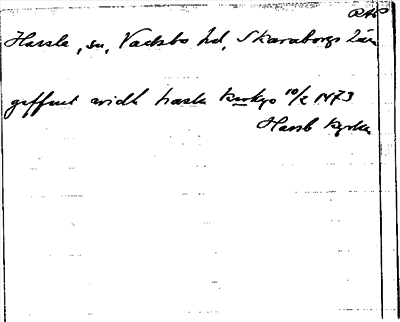 RAP
Hassle, sn, Vadsbo hd, Skaraborgs Län
geffuet widh hasle kirkyo 10/2 1473
Hassle kyrka